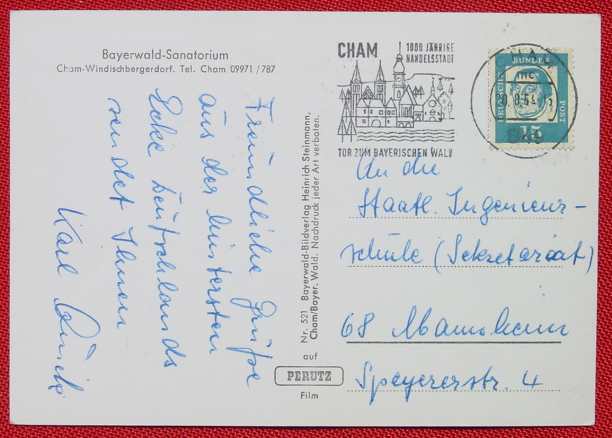 Bayerwald-Sanatorium
Cham-Windischbergerdorf. Tel. Cham 09971/787
Freundliche Grüße
aus der hintersten
Ecke Deutschlands
sendet Ihnen
Karl
Nr. 521 Bayerwald-Bildverlag Heinrich Steinmann,
Cham/Bayer. Wald. Nachdruck jeder Art verboten.
auf
PERUTZ
Film
CHAM
1000 JÄHRIGE
HANDELSSTADT
TOR ZUM BAYERISCHEN WALD
DEUTSCHE BUNDESPOST
15
An die
Staatl. Ingenieur-
schule (Sekretariat)
68 Mannheim
Speyererstr. 4